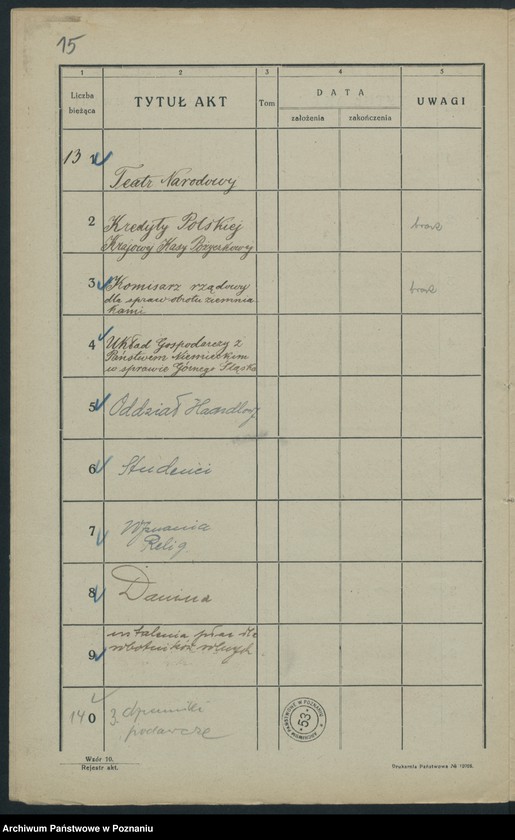 15
1 2 3 4 5
Liczba bieżąca TYTUŁ AKT Tom DATA UWAGI
założenia zakończenia
13 1 Teatr Narodowy
2 Kredyty Polskiej
Krajowy Kasy Pożyczkowy
brak
3 Komisarz rządowy
dla spraw obrotu ziemnia
kami
brak
4 Układ Gospodarczy z
Państwem Niemieckim
w sprawie Górnego Śląska
5 Oddział Handlowy
6 Studenci
7 Wyznania
Relig
8 Danina
9 ustalenia płac dla
robotników rolnych
140 3 dzienniki
podawcze
ARCHIWUM PAŃSTWOWE W POZNANIU
53
Wzór 10.
Rejestr akt.
Drukarnia Państwowa №
Archiwum Państwowe w Poznaniu